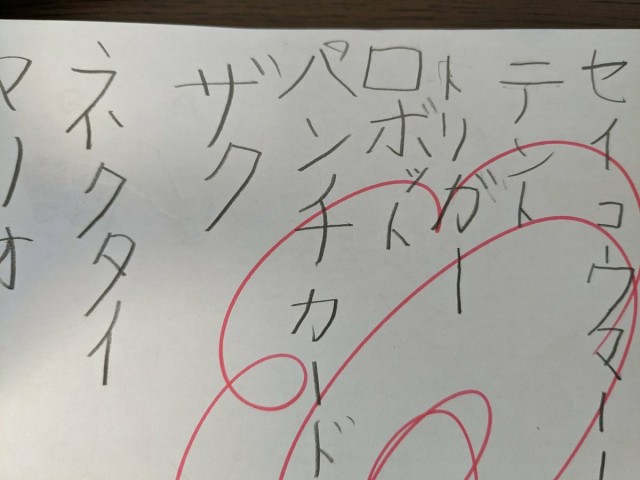 セイコウター
テント
トリガー
ロボット
パンチカード
ザク
ネクタイ
マリオ